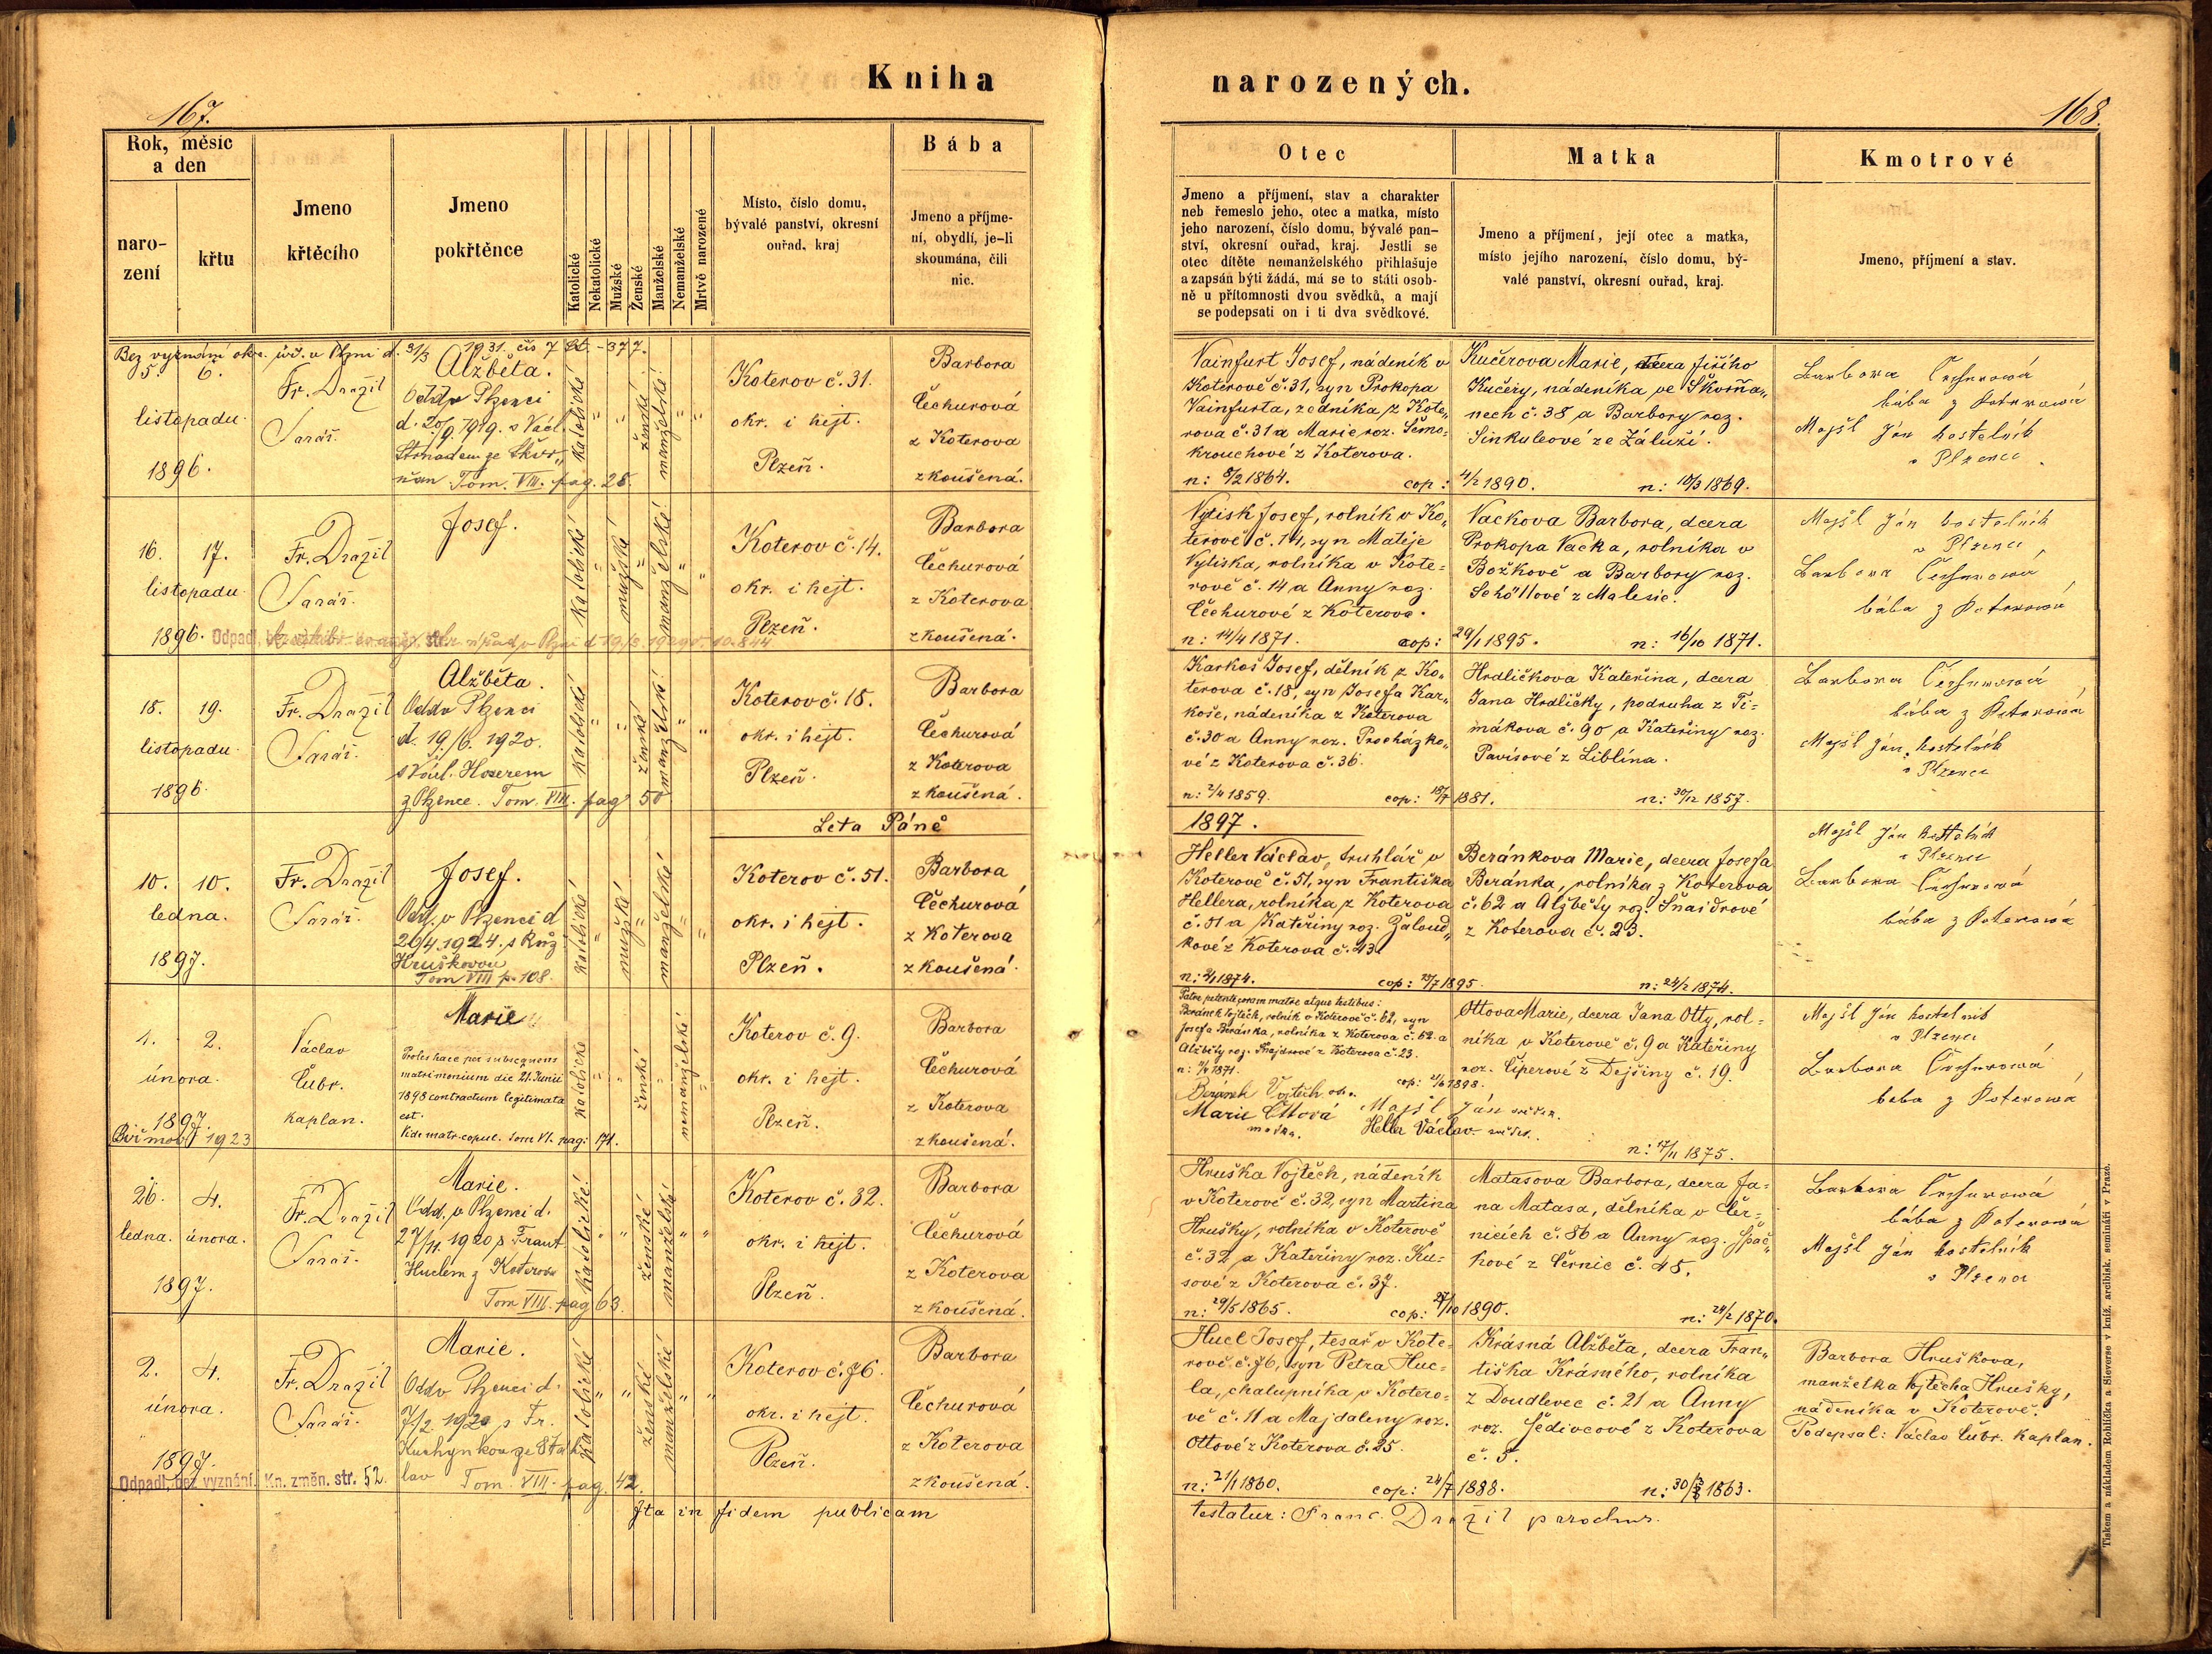 Kniha narozených.
167.
168.
Rok, měsíc a den
narození
křtu
Jmeno křtěcího
Jmeno pokřtěnce
Katolické
Nekatolické
Mužské
Ženské
Manželské
Nemanželské
Mrtvě narozené
Místo, číslo domu,
bývalé panství, okresní
ouřad, kraj
Bába
Jmeno a příjme-
ní, obydlí, je-li
skoumána, čili
nic.
Otec
Jmeno a příjmení, stav a charakter
neb řemeslo jeho, otec a matka, místo
jeho narození, číslo domu, bývalé pan-
ství, okresní ouřad, kraj. Jestli se
otec dítěte nemanželského přihlašuje
a zapsán býti žádá, má se to státi osob-
ně u přítomnosti dvou svědků, a mají
se podepsati on i ti dva svědkové.
Matka
Jmeno a příjmení, její otec a matka,
místo jejího narození, číslo domu, bý-
valé panství, okresní ouřad, kraj.
Kmotrové
Jmeno, příjmení a stav.
Bez vyznání okr. úř. v Plzni d. 31/3 1931. čís 7
5. 6.
listopadu
1896.
Fr. Dražil
Farář.
Alžběta.
Odd. v Plzenci
d. 20/9. 1919. s Václ.
Strnadem ze Škvr„
ňan Tom. VIII. pag. 28.
katolické
ženské
manželské
Koterov č. 31.
okr. i hejt.
Plzeň.
Barbora
Čechurová
z Koterova
zkoušená.
Vainfurt Josef, nádeník v
Koterově č. 31, syn Prokopa
Vainfurta, zedníka z Kote„
rova č. 31 a Marie roz. Šemo„
krouchové z Koterova.
n: 8/2 1864. cop: 4/2 1890.
Kučerova Marie, dcera Jiřího
Kučery, nádeníka ve Škvrňa„
nech č. 38 a Barbory roz.
Sinkuleové ze Záluží.
n: 10/3 1869.
Barbora Čechurová
bába z Koterova
Majšl Ján kostelník
v Plzenci
16. 17.
listopadu
1896.
Fr. Dražil
Farář.
Josef.
katolické
mužské
manželské
Koterov č. 14.
okr. i hejt.
Plzeň.
Barbora
Čechurová
z Koterova
zkoušená.
Vytisk Josef, rolník v Ko„
terově č. 14, syn Matěje
Vytiska, rolníka v Kote=
rově č. 14 a Anny roz.
Čechurové z Koterova.
n: 14/4 1871. cop: 29/1 1895.
Vackova Barbora, dcera
Prokopa Vacka, rolníka v
Božkově a Barbory roz.
Schöllové z Malesic.
n: 16/10 1871.
Majšl Ján kostelník
v Plzenci
Barbora Čechurová
bába z Koterova
18. 19.
listopadu
1896.
Fr. Dražil
Farář.
Alžběta.
Odd. v Plzenci
d. 19/6. 1920.
s Václ. Hoserem
z Plzence. Tom. VIII. pag 50
katolické
ženské
manželské
Koterov č. 18.
okr. i hejt.
Plzeň.
Barbora
Čechurová
z Koterova
zkoušená.
Karkoš Josef, dělník z Ko„
terova č. 18, syn Josefa Kar„
koše, nádeníka z Koterova
č. 30 a Anny roz. Procházko„
vé z Koterova č. 36.
n: 2/4 1859. cop: 18/7 1881.
Hrdličkova Kateřina, dcera
Jana Hrdličky, podruha z Ti=
mákova č. 90 a Kateřiny roz.
Pavisové z Liblína.
n: 30/12 1857.
Barbora Čechurová
bába z Koterova
Majšl Ján kostelník
v Plzenci
Leta Páně 1897.
10. 10.
ledna.
1897.
Fr. Dražil
Farář.
Josef.
Odd. v Plzenci d
26/4. 1924. s Růž.
Hruškovou
Tom VIII p. 108.
katolické
mužské
manželské
Koterov č. 51.
okr. i hejt.
Plzeň.
Barbora
Čechurová
z Koterova
zkoušená.
Heller Václav, truhlář v
Koterově č. 51, syn Františka
Hellera, rolníka z Koterova
č. 51 a Kateřiny roz. Žaloud„
kové z Koterova č. 43.
1874. 1895.
Beránkova Marie, dcera Josefa
Beránka, rolníka z Koterova
č. 62 a Alžběty roz. Šnaidrové
z Koterova č. 23.
n: 24/2 1874.
Majšl Ján kostelník
v Plzenci
Barbora Čechurová
bába z Koterova
1. 2.
února.
1897.
Biřmov. 1923
Václav
Čubr.
kaplan.
Marie
Proles haec per subsequens
matrimonium die 21. Junii
1898 contractum legitimata
est.
Vide matr. copul. Tom VI. pag: 171.
katolické
ženské
nemanželské
Koterov č. 9.
okr. i hejt.
Plzeň.
Barbora
Čechurová
z Koterova
zkoušená.
Patre petente coram matre atque testibus:
Beránek Vojtěch, rolník v Koterově č. 62, syn
Josefa Beránka, rolníka z Koterova č. 62 a
Alžběty roz. Šnajdrové z Koterova č. 23.
1871. cop: 21/6 1898.
Beránek Vojtěch otec.
Marie Ottová Majšl Ján svědek.
matka. Heller Václav svědek.
Ottova Marie, dcera Jana Otty, rol=
níka v Koterově č. 9 a Kateřiny
roz. Čiperové z Dejšiny č. 19.
n: 17/11 1875.
Majšl Ján kostelník
v Plzenci
Barbora Čechurová
bába z Koterova
26. 4.
ledna. února.
1897.
Fr. Dražil
Farář.
Marie.
Odd. v Plzenci d.
27/11. 1920 s Frant.
Huclem z Koterova
Tom VIII. pag 63.
katolické
ženské
manželské
Koterov č. 32.
okr. i hejt.
Plzeň.
Barbora
Čechurová
z Koterova
zkoušená.
Hruška Vojtěch, nádeník
v Koterově č. 32, syn Martina
Hrušky, rolníka v Koterově
č. 32 a Kateřiny roz. Ku=
sové z Koterova č. 37.
n: 29/5 1865. cop: 27/10 1890.
Matasova Barbora, dcera Ja=
na Matasa, dělníka v Čer=
nicích č. 86 a Anny roz. Špač„
kové z Černic č. 45.
n: 24/2 1870.
Barbora Čechurová
bába z Koterova
Majšl Ján kostelník
v Plzenci
2. 4.
února.
1897.
Odpadl, bez vyznání. Kn. změn. str. 52.
Fr. Dražil
Farář.
Marie.
Odd. v Plzenci d.
7/2. 1920 s Fr.
Kuchynkou ze Šťáh
lav Tom. VIII. pag. 42.
katolické
ženské
manželské
Koterov č. 76.
okr. i hejt.
Plzeň.
Barbora
Čechurová
z Koterova
zkoušená.
Hucl Josef, tesař v Kote=
rově č. 76, syn Petra Huc=
la, chalupníka v Kotero=
vě č. 11 a Majdaleny roz.
Ottové z Koterova č. 25.
n: 21/1 1860. cop: 24/7 1888.
Krásná Alžběta, dcera Fran„
tiška Krásného, rolníka
z Doudlevec č. 21 a Anny
roz. Šedivcové z Koterova
č. 5.
n: 30/3 1863.
Barbora Hruškova,
manželka Vojtěcha Hrušky,
nádeníka v Koterově.
Podepsal: Václav Čubr. kaplan.
Ita in fidem publicam testatur: Franc. Dražil parochus.
Tiskem a nákladem Rohlíčka a Sieverse v kníž. arcibisk. semináři v Praze.